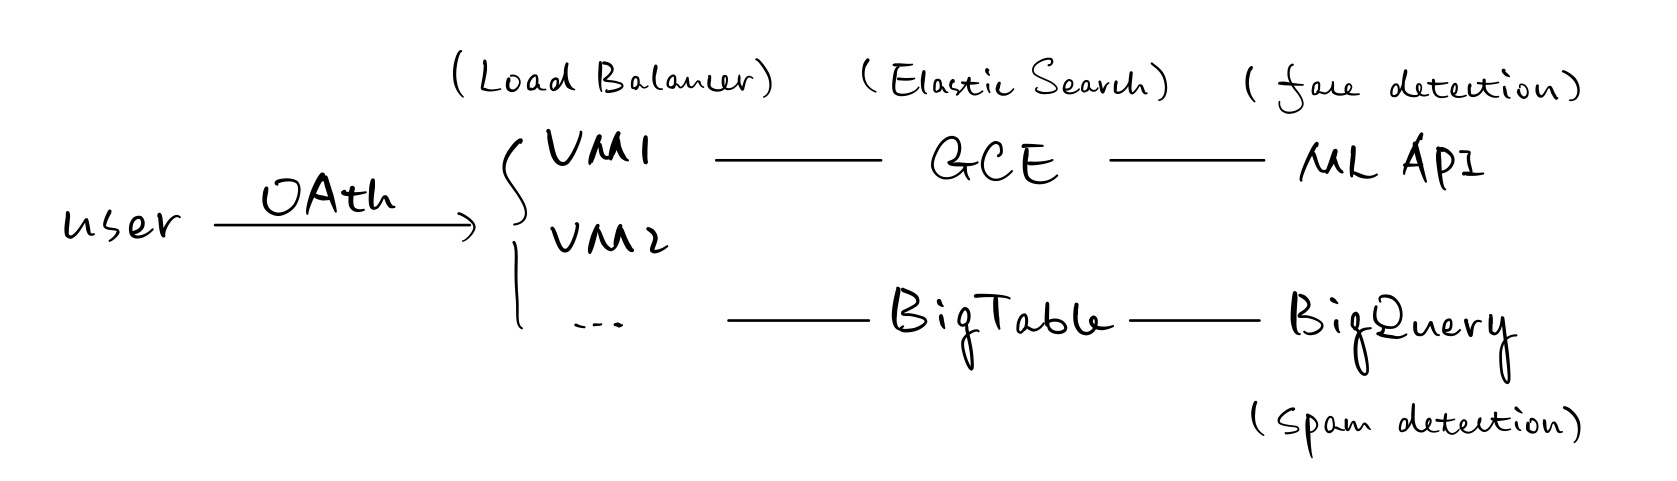 (Load Balancer) (Elastic Search) (face detection)
VM1 GCE ML API
OAth
user
VM2
... BigTable BigQuery
(spam detection)